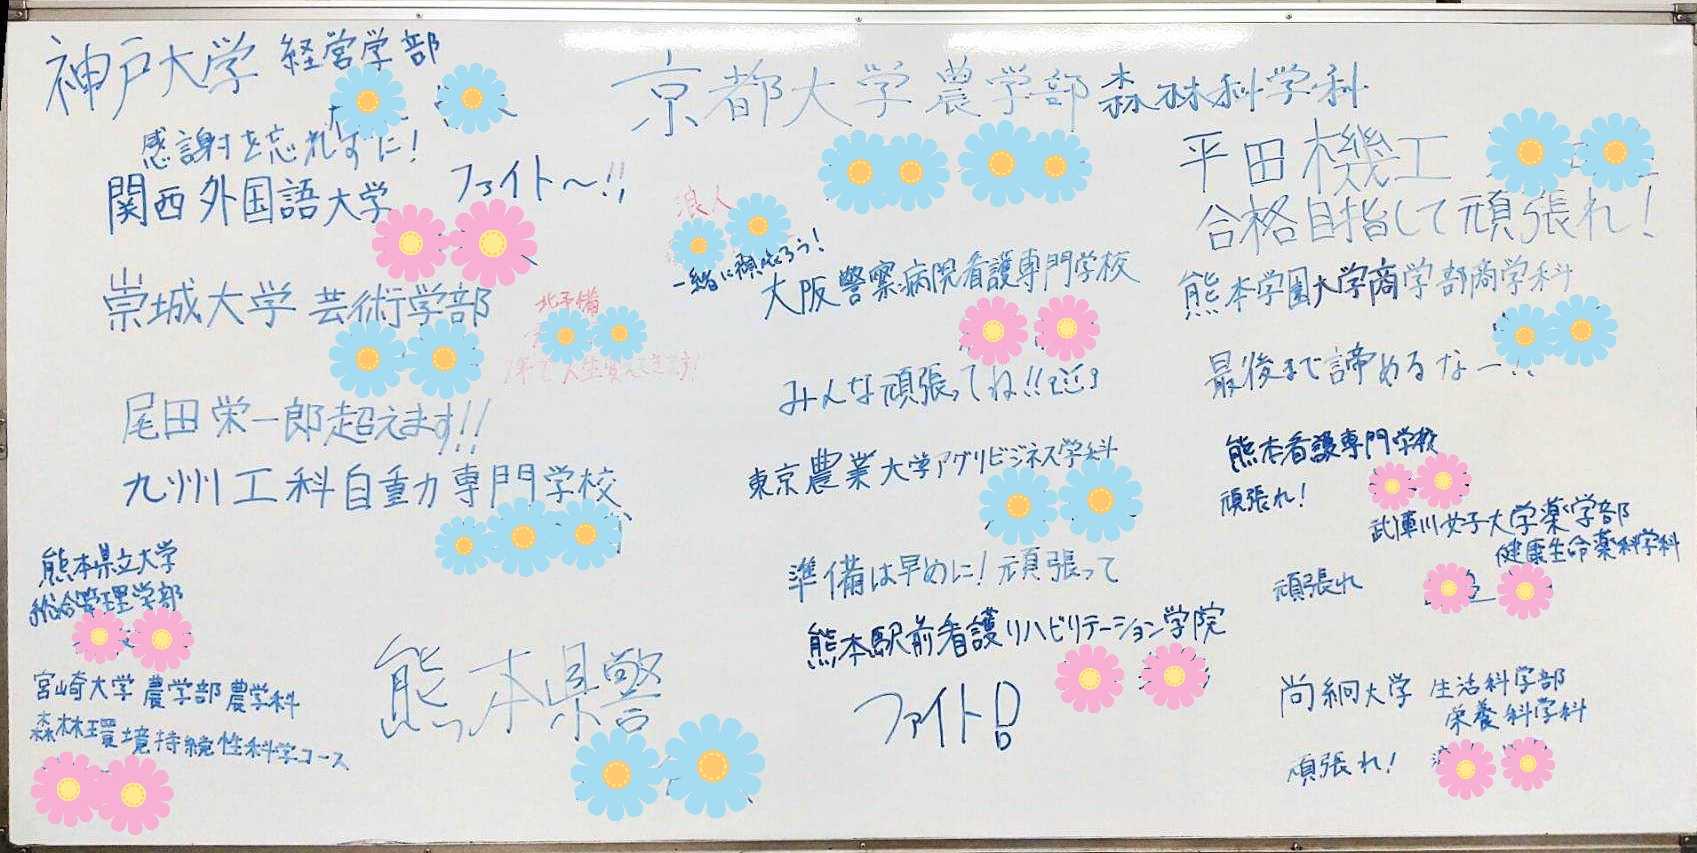 神戸大学 経営学部
感謝を忘れずに!
関西外国語大学
ファイト〜!!
崇城大学 芸術学部
北予備
1年で人生変えてきます!
尾田栄一郎超えます!!
九州工科自動力専門学校
熊本県立大学
総合管理学部
宮崎大学 農学部 農学科
森林環境持続性科学コース
熊本県警
京都大学 農学部 森林科学科
浪人
一緒に頑張ろう!
大阪警察病院看護専門学校
みんな頑張ってね!!
東京農業大学アグリビジネス学科
準備は早めに!頑張って
熊本駅前看護リハビリテーション学院
ファイト!
平田機工
合格目指して頑張れ!
熊本学園大学商学部商学科
最後まで諦めるなー!!
熊本看護専門学校
頑張れ!
武庫川女子大学薬学部
健康生命薬科学科
頑張れ
尚絅大学 生活科学部
栄養科学科
頑張れ!